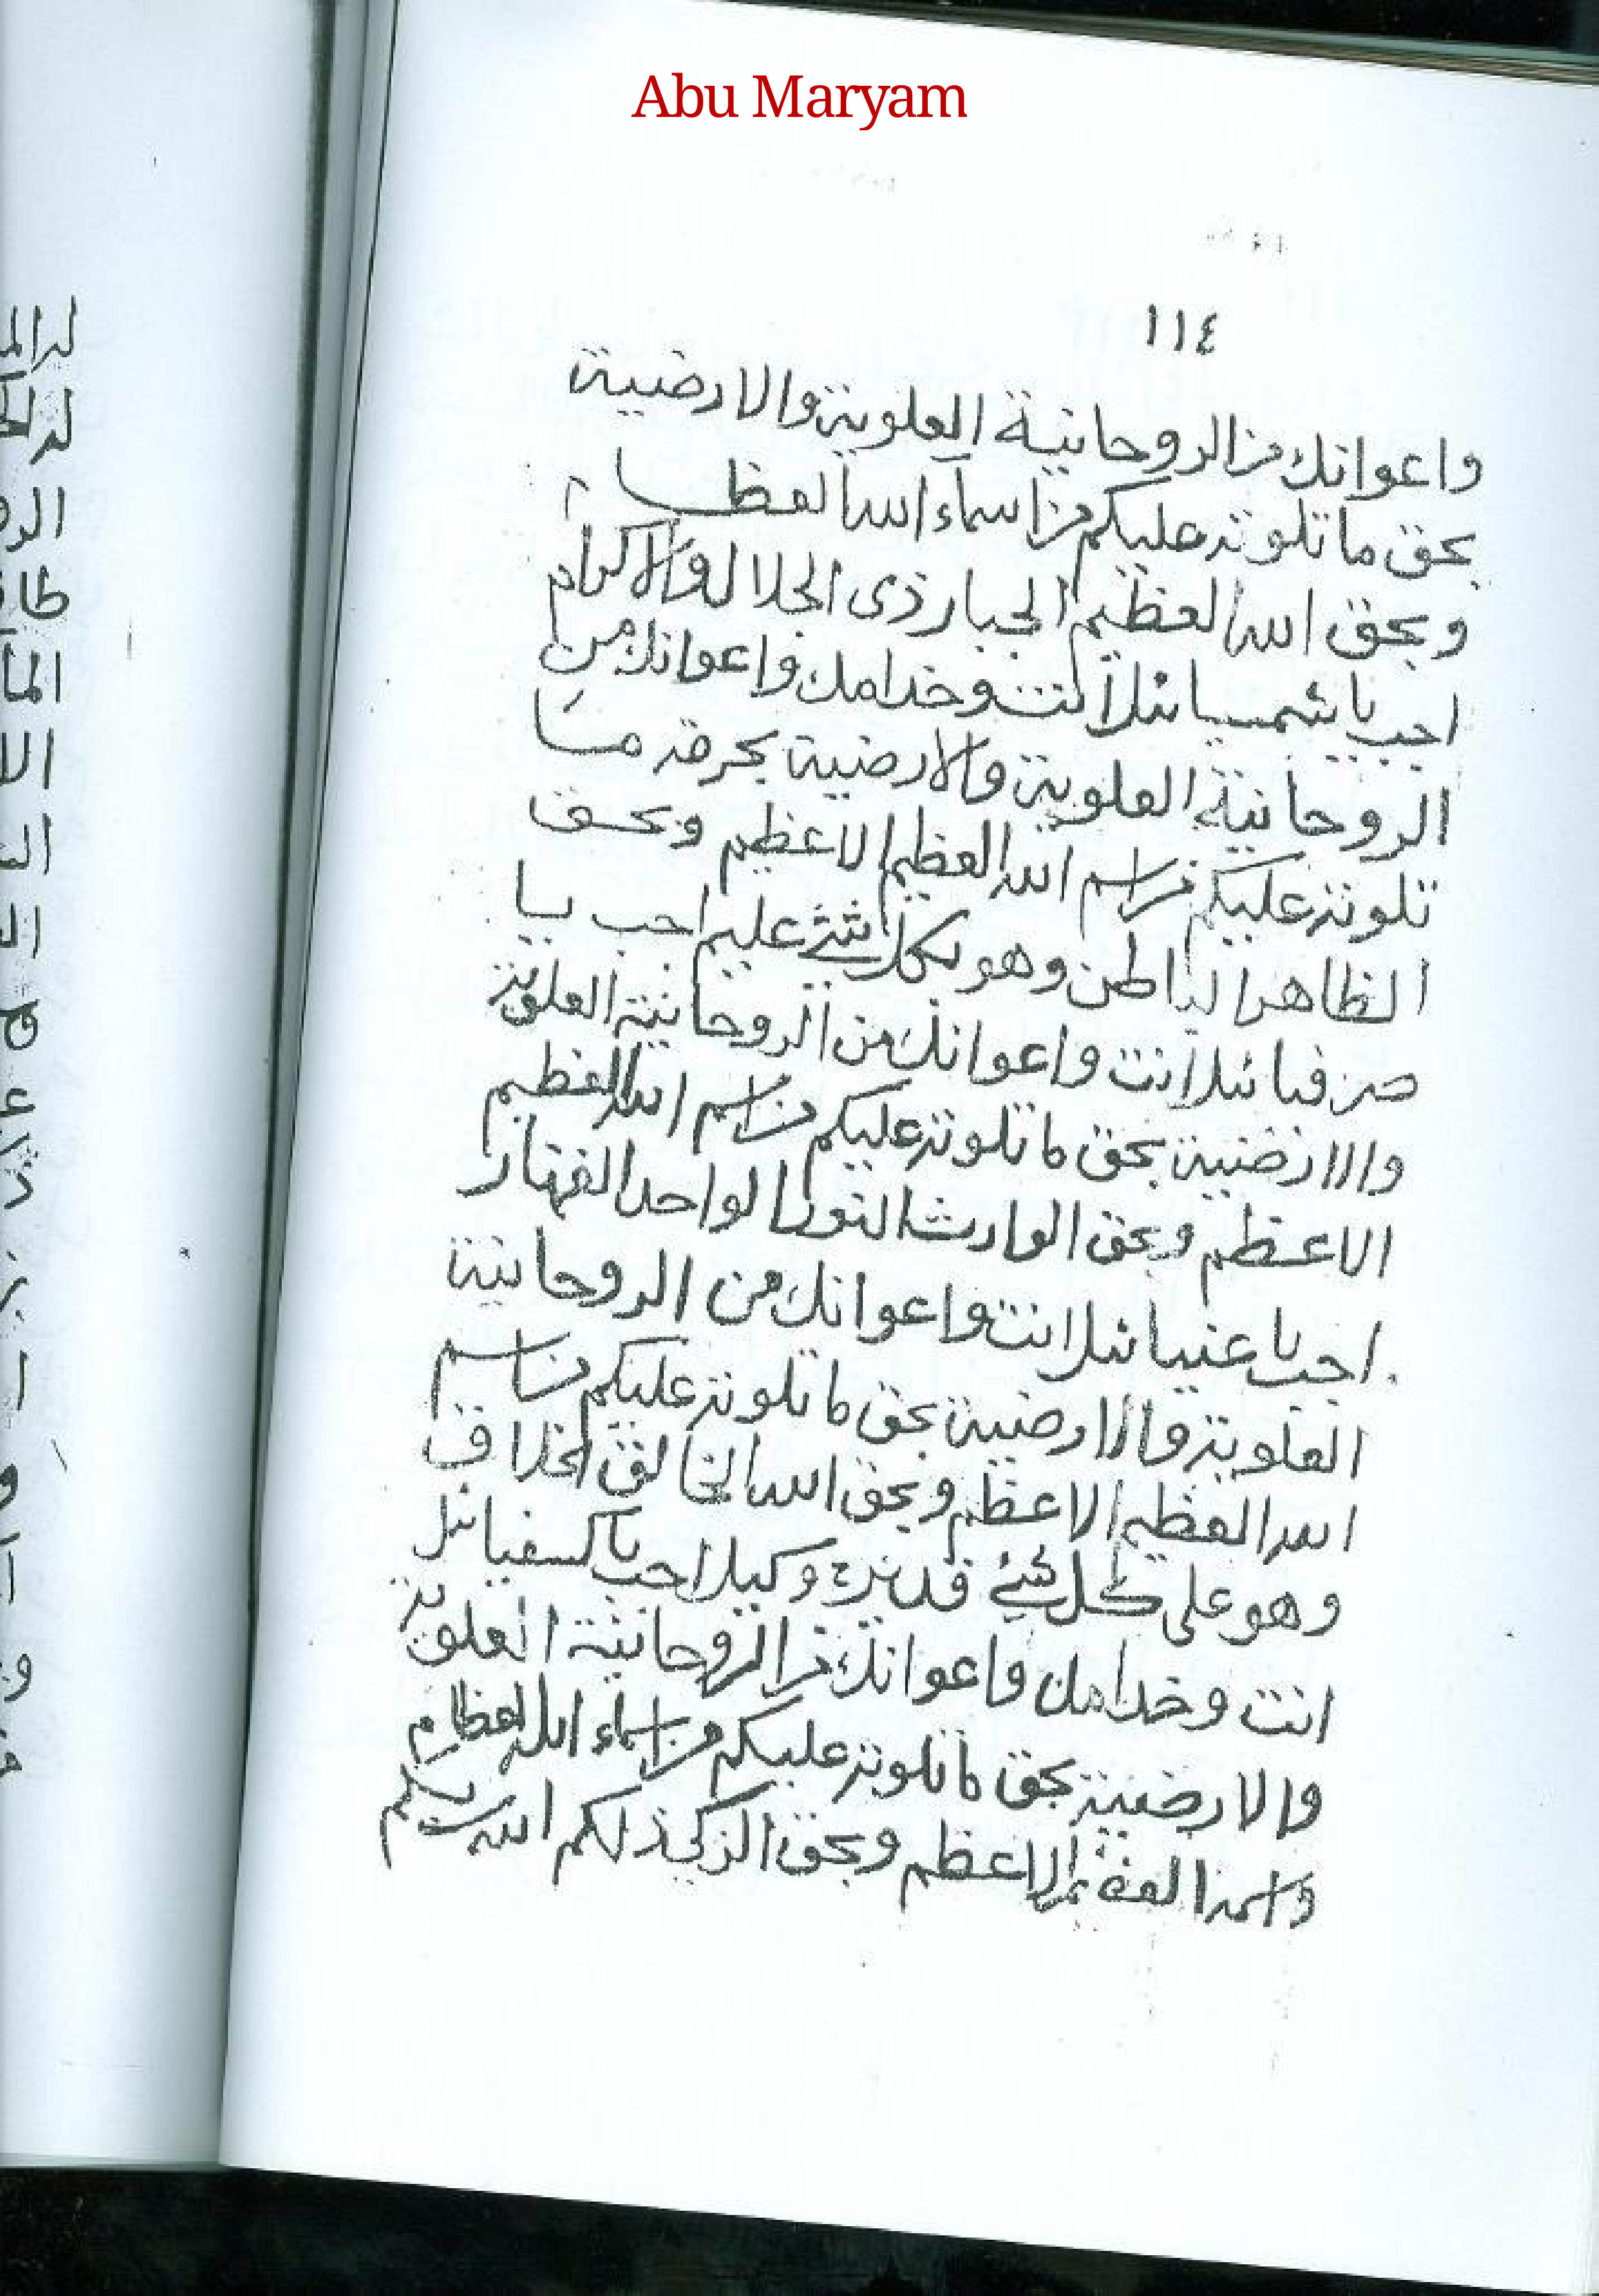 Abu Maryam
١١٤
واعوانك من الروحانية العلوية والارضية
بحق ما تلوته عليكم من اسماء الله العظام
وبحق الله العظيم الجبار ذى الجلال والاكرام
اجب يا شمسيائيل انت وخدامك واعوانك من
الروحانية العلوية والارضية بحرمة ما
تلوته عليكم من اسم الله العظيم الاعظيم وبحق
الظاهر الباطن وهو بكل شئ عليم اجب يا
صرفيائيل انت واعوانك من الروحانية العلوية
والارضية بحق ما تلوته عليكم من اسم الله العظيم
الاعظم وبحق الوارث النور الواحد القهار
اجب يا عنيائيل انت واعوانك من الروحانية
العلوية والارضية بحق ما تلوته عليكم من اسم
الله العظيم الاعظم وبحق الله الخالق الخلاق
وهو على كل شئ قدير وكيل اجب يا كسفيائيل
انت وخدامك واعوانك من الروحانية العلوية
والارضية بحق ما تلوته عليكم من اسماء الله العظام
واسمه العظيم الاعظم وبحق الزكي ذلكم الله ربكم